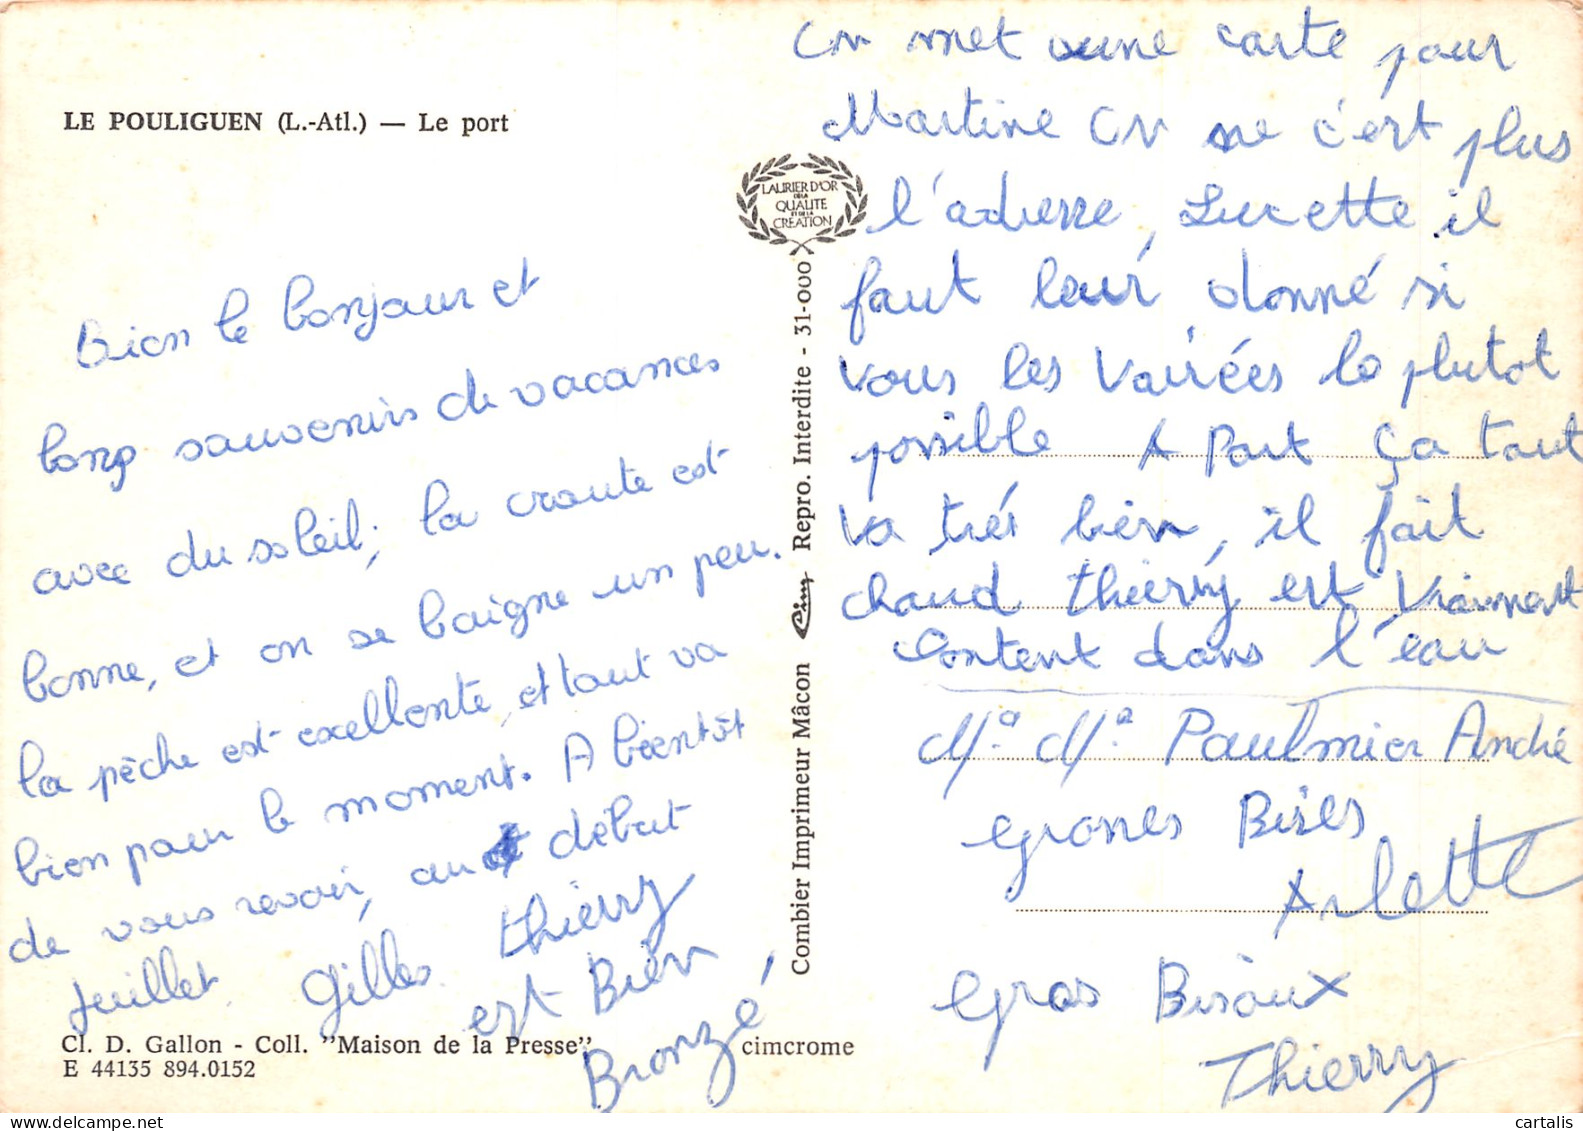 LE POULIGUEN (L.-Atl.) — Le port
Bien le bonjour et
bons souvenirs de vacances
avec du soleil; la croute est
bonne, et on se baigne un peu.
la pêche est excellente, et tout va
bien pour le moment. A bientôt
de vous revoir, au début
Juillet. Gilles. Thierry
est Bien
Bronzé,
Cl. D. Gallon - Coll. "Maison de la Presse"
E 44135 894.0152
cimcrome
LAURIER D'OR
DE LA
QUALITE
ET DE LA
CREATION
Combier Imprimeur Mâcon Cim Repro. Interdite - 31-000
On met une carte pour
Martine On ne c'ert plus
l'adresse, Lucette il
faut leur donné si
vous les Vairées le plutot
possible A Part ça tout
va trés bien, il fait
chaud Thierry est Vraiment
Content dans l'eau
Mr. Me. Paulmier André
Groses Bises
Arlette
Gros Bisoux
Thierry
cartalis